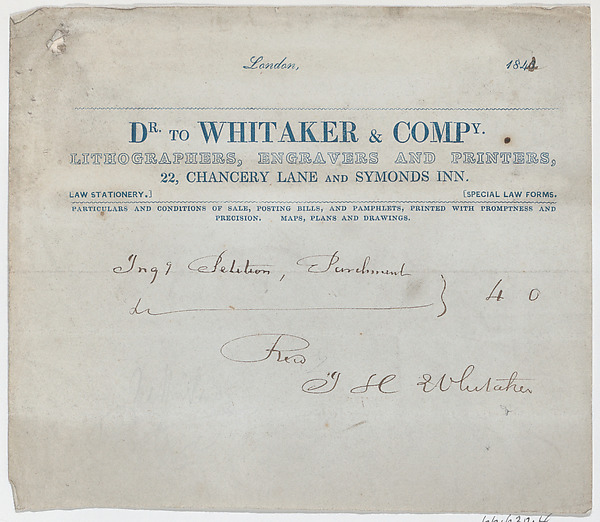 London, 184
Dr. to WHITAKER & COMPy.
LITHOGRAPHERS, ENGRAVERS AND PRINTERS,
22, CHANCERY LANE AND SYMONDS INN.
LAW STATIONERY.] [SPECIAL LAW FORMS.
PARTICULARS AND CONDITIONS OF SALE, POSTING BILLS, AND PAMPHLETS, PRINTED WITH PROMPTNESS AND
PRECISION. MAPS, PLANS AND DRAWINGS.
Ing g Petition, Parchment
&c } 4 0
J H Whitaker